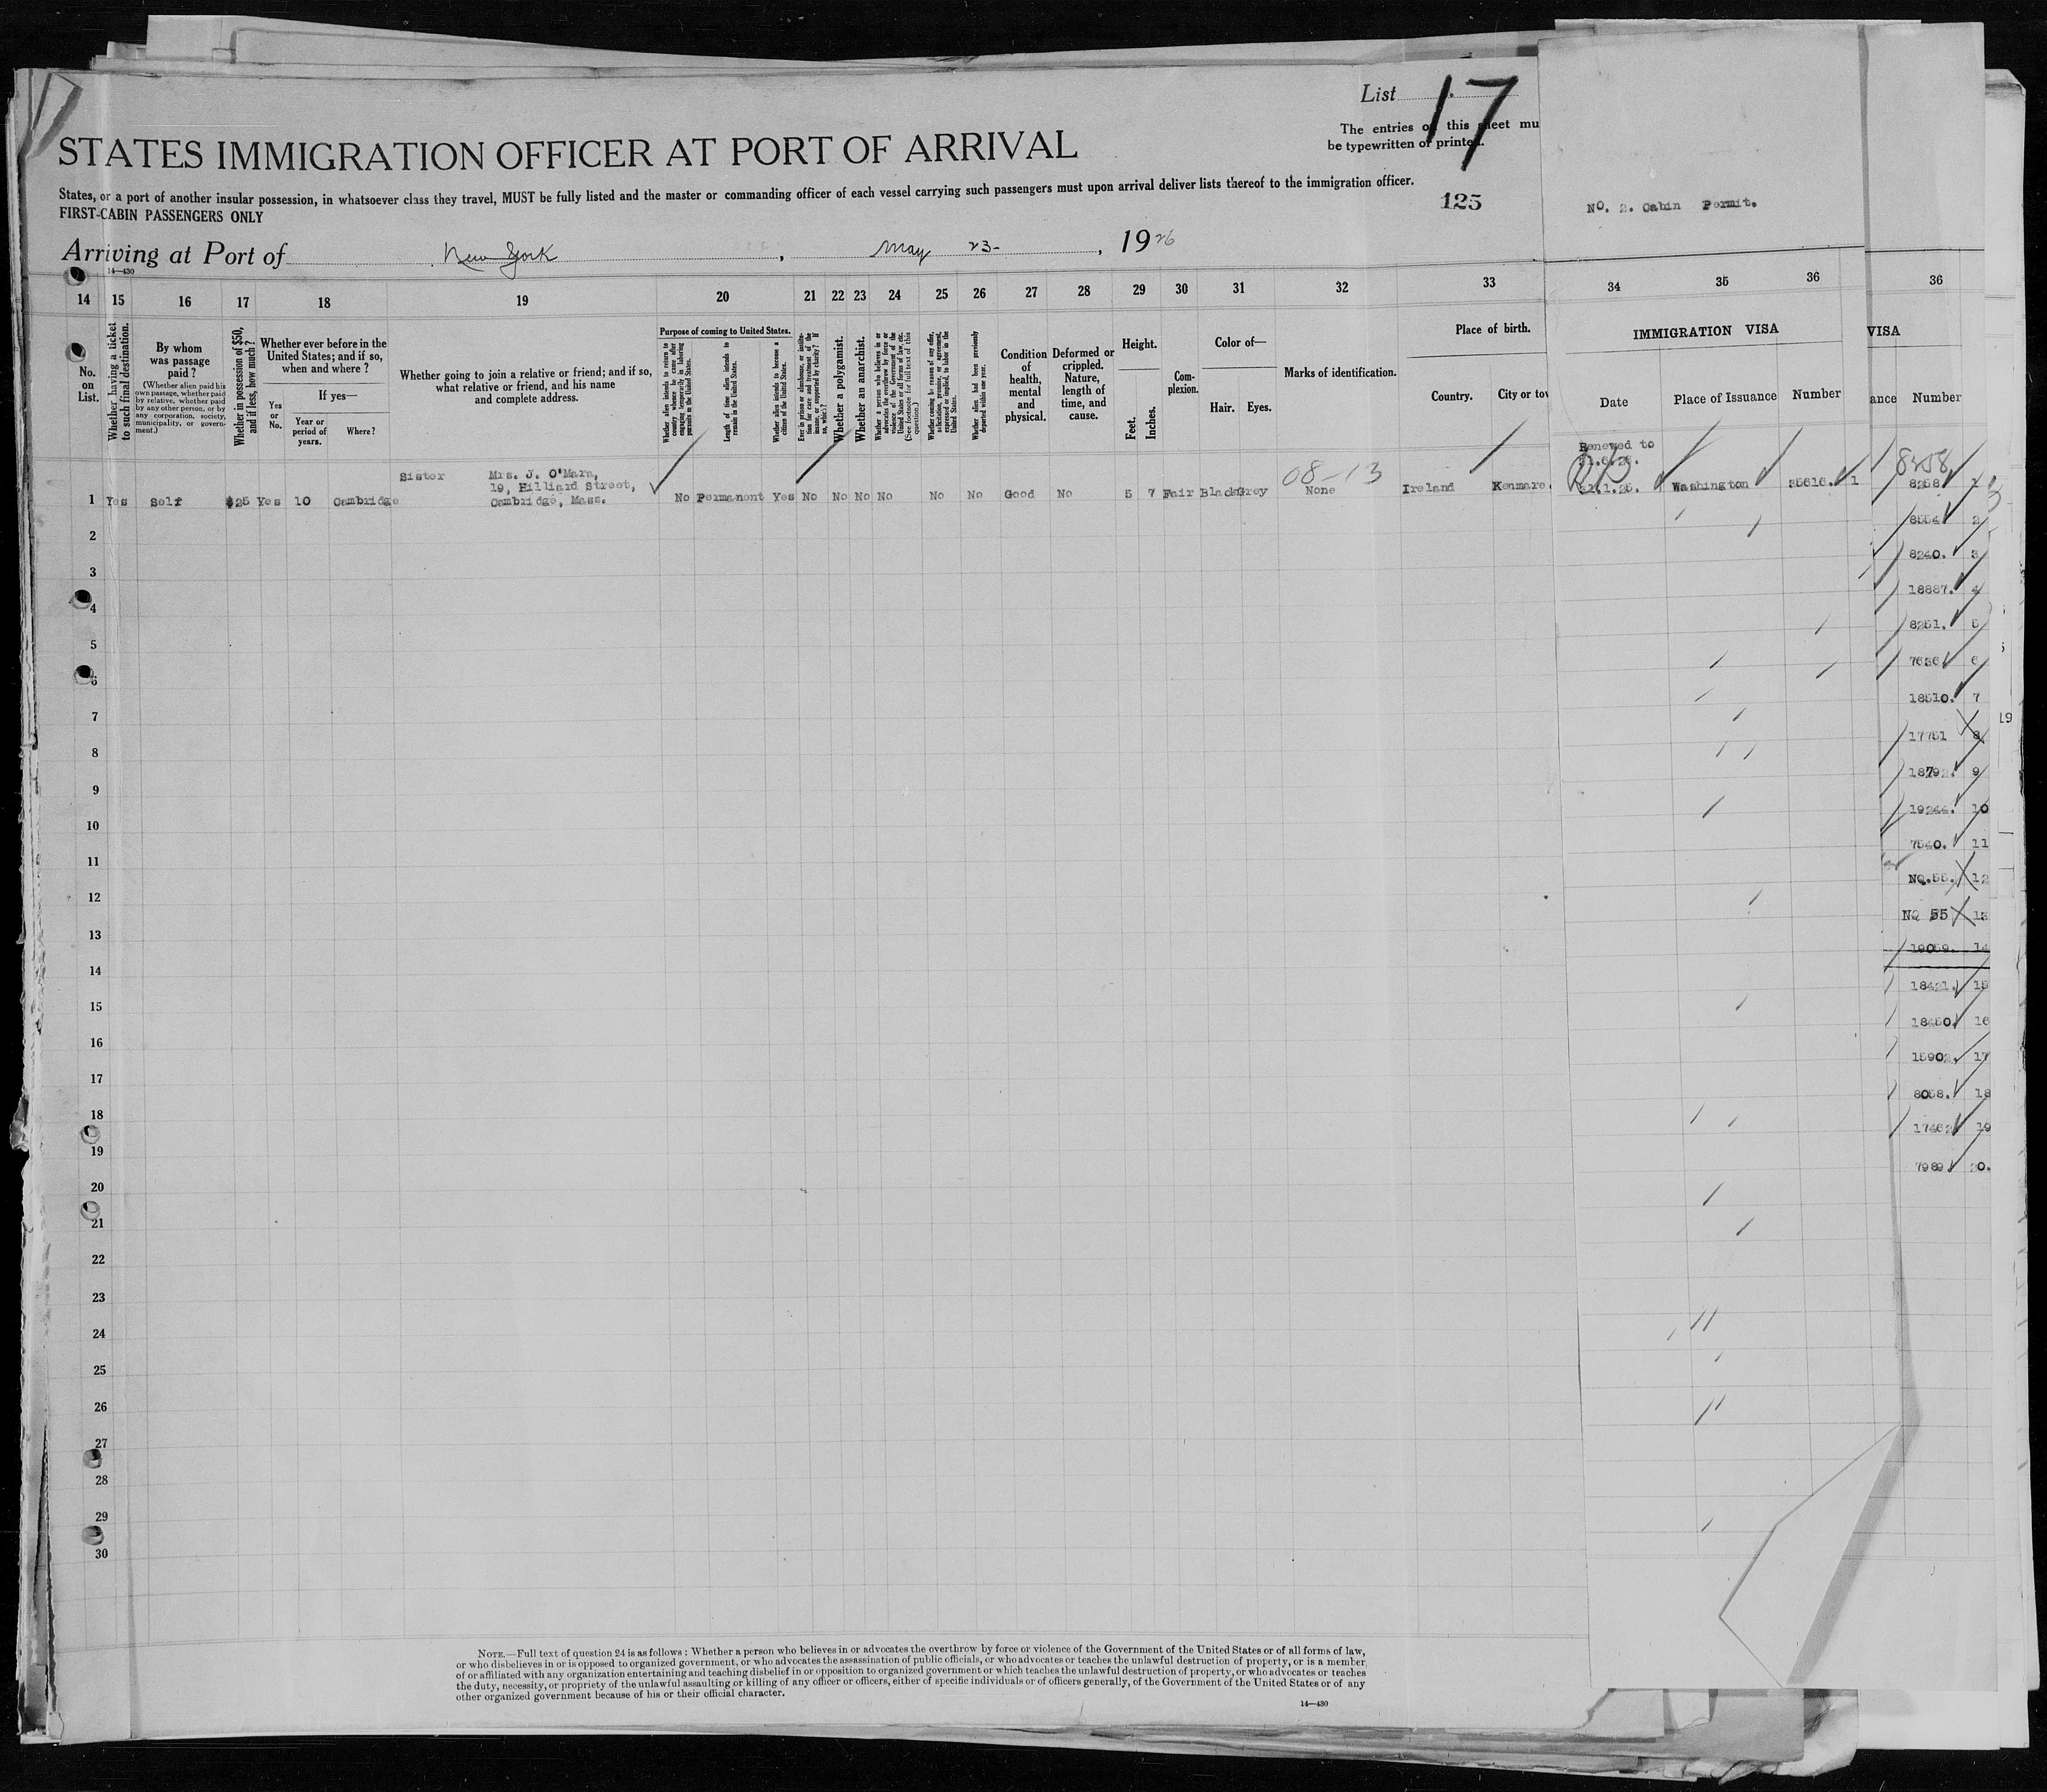 List 17
The entries on this sheet mu
be typewritten or printed.
STATES IMMIGRATION OFFICER AT PORT OF ARRIVAL
States, or a port of another insular possession, in whatsoever class they travel, MUST be fully listed and the master or commanding officer of each vessel carrying such passengers must upon arrival deliver lists thereof to the immigration officer.
FIRST-CABIN PASSENGERS ONLY
125
No. 2. Cabin Permit.
Arriving at Port of New York, May 23-, 1926
14—430
14 15 16 17 18 19 20 21 22 23 24 25 26 27 28 29 30 31 32 33 34 35 36 36
No. on List.
Whether having a ticket to such final destination.
By whom was passage paid?
(Whether alien paid his own passage, whether paid by relative, whether paid by any other person, or by any corporation, society, municipality, or government.)
Whether in possession of $50, and if less, how much?
Whether ever before in the United States; and if so, when and where?
If yes—
Yes or No.
Year or period of years.
Where?
Whether going to join a relative or friend; and if so, what relative or friend, and his name and complete address.
Purpose of coming to United States.
Whether alien intends to return to country whence he came after engaging temporarily in laboring pursuits in the United States.
Length of time alien intends to remain in the United States.
Whether alien intends to become a citizen of the United States.
Ever in prison or almshouse, or institution for care and treatment of the insane, or supported by charity? If so, which?
Whether a polygamist.
Whether an anarchist.
Whether a person who believes in or advocates the overthrow by force or violence of the Government of the United States or all forms of law, etc. (See footnote for full text of this question.)
Whether coming by reason of any offer, solicitation, promise, or agreement, expressed or implied, to labor in the United States.
Whether alien had been previously deported within one year.
Condition of health, mental and physical.
Deformed or crippled. Nature, length of time, and cause.
Height.
Feet.
Inches.
Complexion.
Color of—
Hair. Eyes.
Marks of identification.
Place of birth.
Country.
City or tow
IMMIGRATION VISA
Date
Place of Issuance
Number
VISA
ance
Number
Sister Mrs. J. O'Mara,
19, Hilliard Street,
1 Yes Self $25 Yes 10 Cambridge Cambridge, Mass. No Permanent Yes No No No No No No Good No 5 7 Fair Black Grey None Ireland Kenmare.
08-13
Renewed to
Washington 35616. 1
8258
8258
8554 2
8240. 3
18887. 4
8251. 5
7636 6
18510. 7
17751 8
18792. 9
19244. 10
7540. 11
No.55. 12
No 55 13
19059. 14
18421. 15
18450. 16
15902. 17
8058. 18
17462 19
7989. 20.
19
2
3
4
5
6
7
8
9
10
11
12
13
14
15
16
17
18
19
20
21
22
23
24
25
26
27
28
29
30
NOTE.—Full text of question 24 is as follows: Whether a person who believes in or advocates the overthrow by force or violence of the Government of the United States or of all forms of law,
or who disbelieves in or is opposed to organized government, or who advocates the assassination of public officials, or who advocates or teaches the unlawful destruction of property, or is a member
of or affiliated with any organization entertaining and teaching disbelief in or opposition to organized government or which teaches the unlawful destruction of property, or who advocates or teaches
the duty, necessity, or propriety of the unlawful assaulting or killing of any officer or officers, either of specific individuals or of officers generally, of the Government of the United States or of any
other organized government because of his or their official character.
14—430